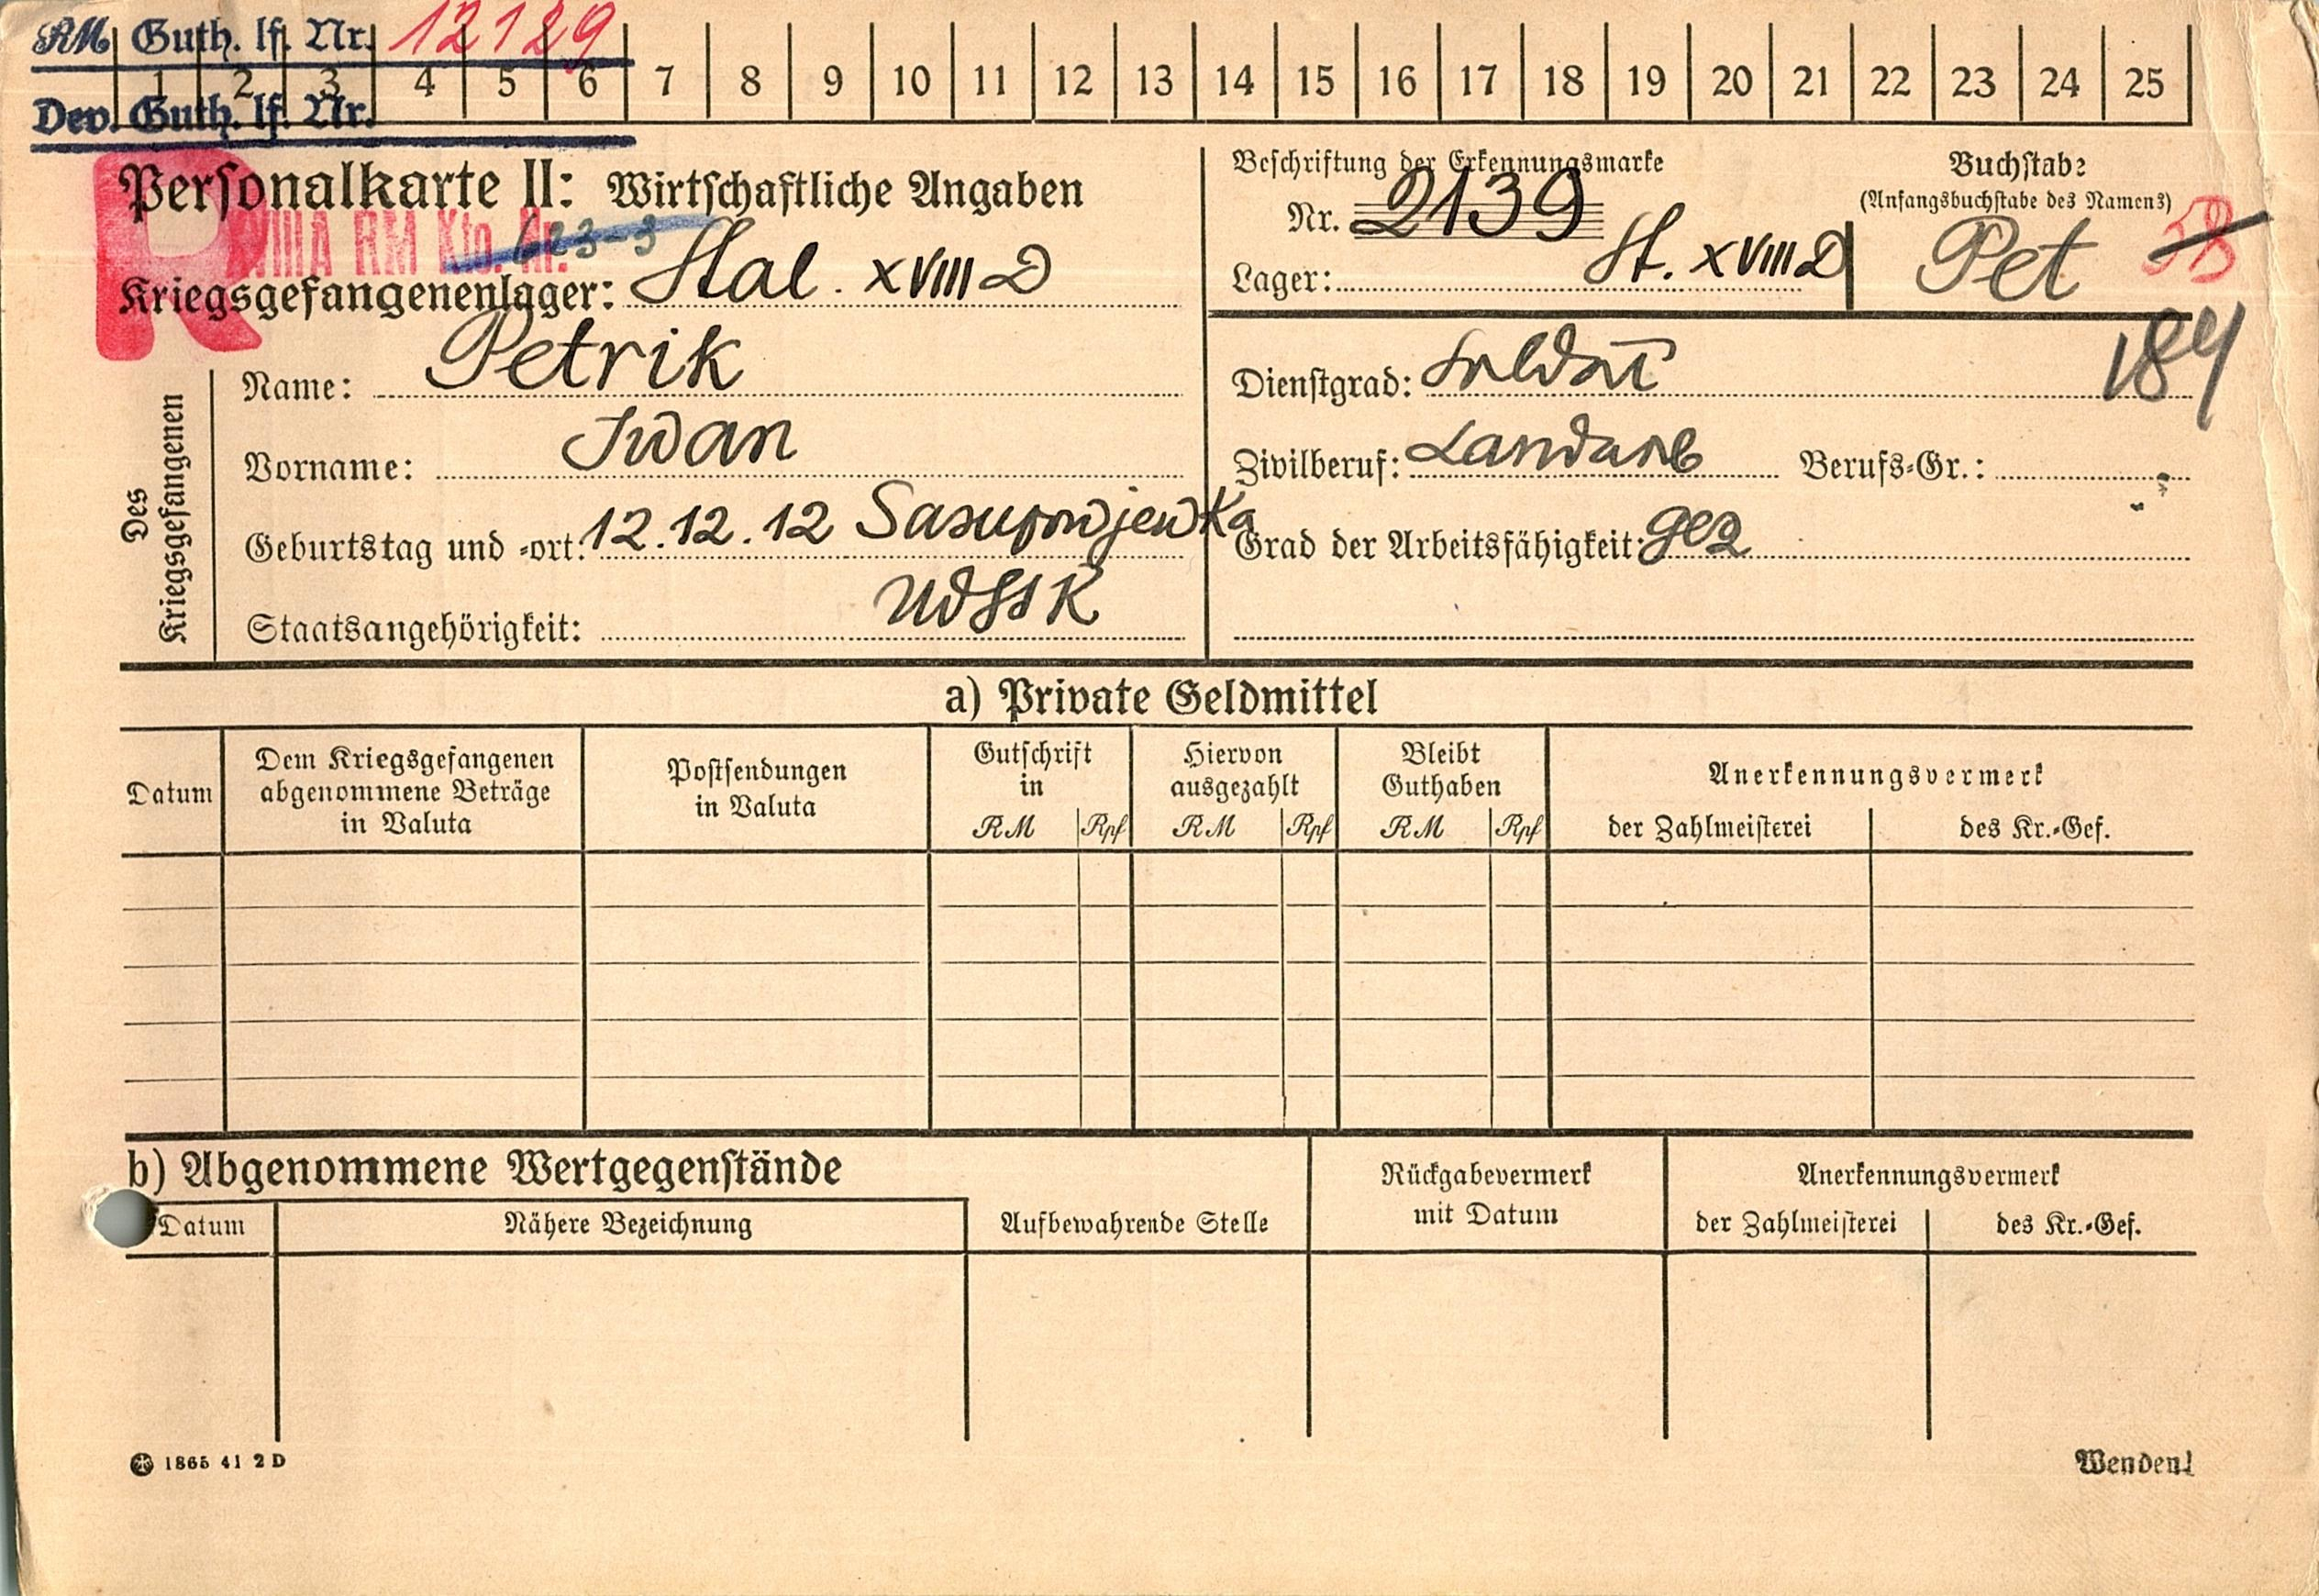 RM Guth. lf. Nr. 12129
1 2 3 4 5 6 7 8 9 10 11 12 13 14 15 16 17 18 19 20 21 22 23 24 25
Dev. Guth. lf. Nr.
Personalkarte II: Wirtschaftliche Angaben
R VIIIA RM Kto. Nr.
Kriegsgefangenenlager: Stal. XVIII D
Beschriftung der Erkennungsmarke
Nr. 2139
Lager: St. XVIII D
Buchstabe
(Anfangsbuchstabe des Namens)
Pet 58
184
Des Kriegsgefangenen
Name: Petrik
Vorname: Iwan
Geburtstag und -ort: 12.12.12
Staatsangehörigkeit: UdSSR
Dienstgrad: Soldat
Zivilberuf: Landarb Berufs-Gr.:
Grad der Arbeitsfähigkeit:
a) Private Geldmittel
Datum
Dem Kriegsgefangenen
abgenommene Beträge
in Valuta
Postsendungen
in Valuta
Gutschrift
in
RM Rpf
Hiervon
ausgezahlt
RM Rpf
Bleibt
Guthaben
RM Rpf
Anerkennungsvermerk
der Zahlmeisterei
des Kr.-Gef.
b) Abgenommene Wertgegenstände
Datum
Nähere Bezeichnung
Aufbewahrende Stelle
Rückgabevermerk
mit Datum
Anerkennungsvermerk
der Zahlmeisterei
des Kr.-Gef.
1865 41 2 D
Wenden!